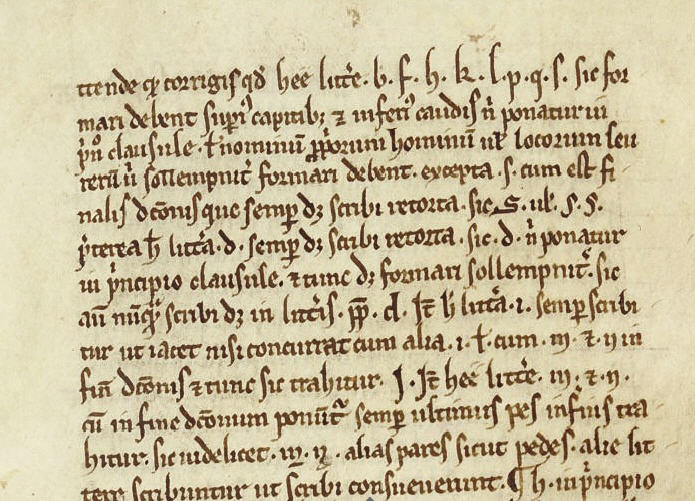 ttende qͥ corrigis qd̕ hee litt̕e. b. f. h. k. l. p. q. s. sic for
mari debent suꝑi᷒ capitib; ⁊ inferi᷒ caudis n̄ ponatur in
p̕nº clausule. ł nominū ꝓp̕orum hominū ul̕ locorum seu
rerū ñ sollempnit̕ formari debent. excepta .s. cum est fi
nalis dc̄onis que semꝑ dꝫ scribi retorta. sic S. ul̕. s. s.
p̕terea h̄ litt̕a .d. semꝑ dꝫ scribi retorta. sic .d. n̄ ponatur
in p̕ncipio clausule. ⁊ tunc dꝫ formari sollempnit̕. sic
aū nūqͣ scribi dꝫ in litt̕is. pp̄. d. It̄ h̄ litt̕a .i. semꝑ scribi
tur ut iacet nisi concurrat cum alia .i. ł. cum .m. ⁊ .n in
fin̄ dc̄onis ⁊ tunc sic trahitur. J. It̄ hee litt̕e. m. ⁊ .n.
cū in fine dc̄onum ponūt̕ semꝑ ultimus pes inf̕ius tra
hitur. sic uidelicet. m. n. alias pares sicut pedes. alie lit
tere scribuntur ut scribi consueuerunt. ¶ h. in p̕ncipio